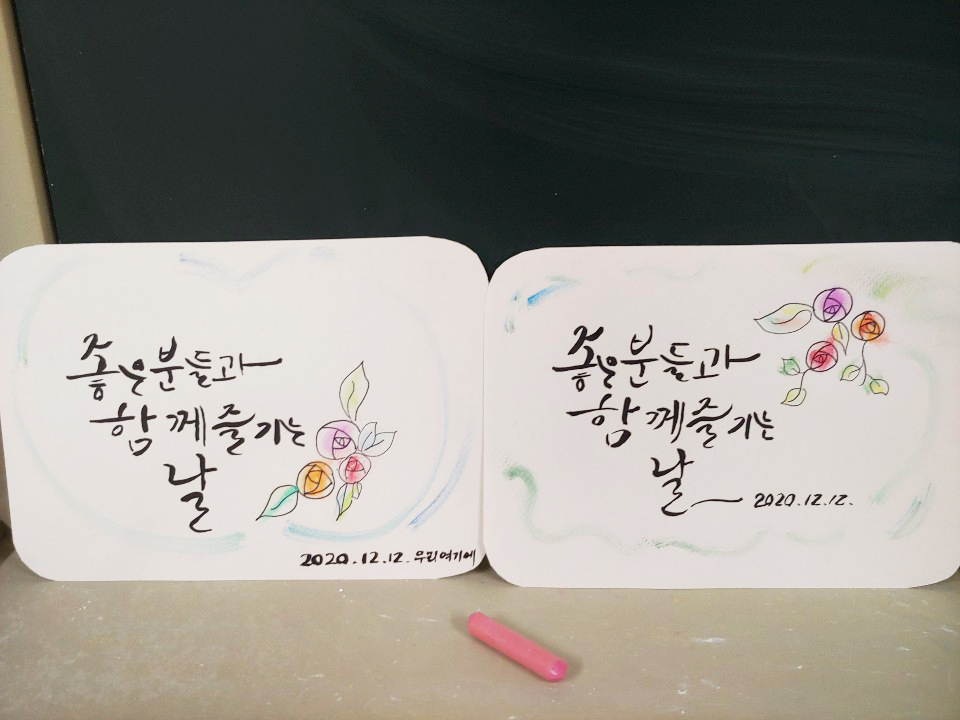 좋은분들과
함께즐기는
날
2020.12.12. 우리여기에
좋은분들과
함께즐기는
날 2020.12.12.